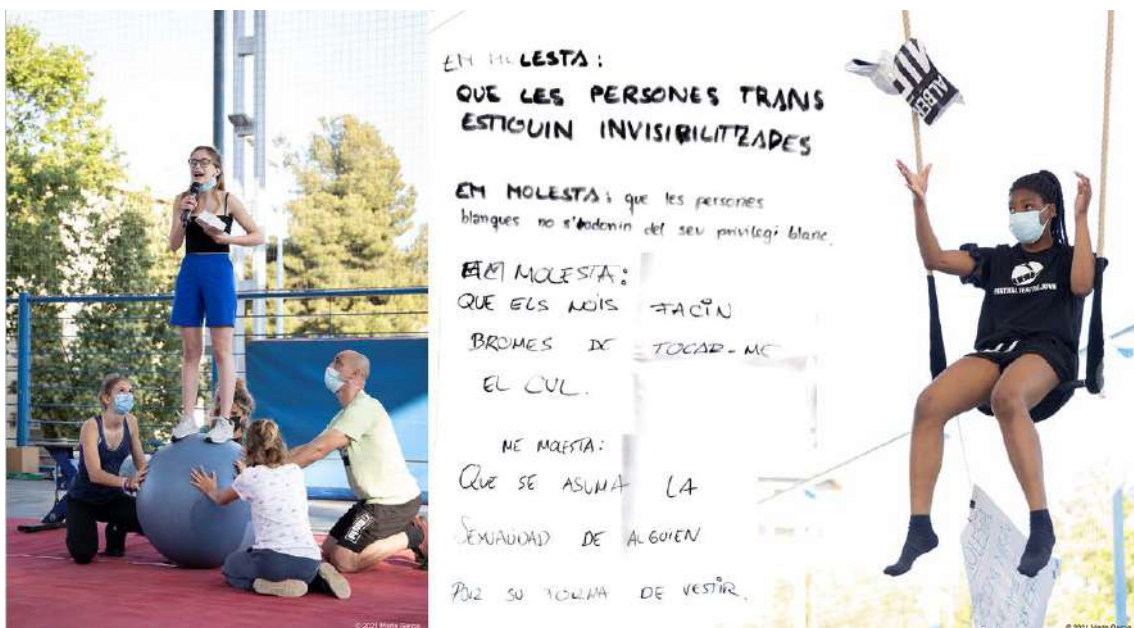 EM MOLESTA:
QUE LES PERSONES TRANS
ESTIGUIN INVISIBILITZADES
EM MOLESTA: que les persones
blanques no s'adonin del seu privilegi blanc.
EM MOLESTA:
QUE ELS NOIS FACIN
BROMES DE TOCAR-ME
EL CUL.
ME MOLESTA:
QUE SE ASUMA LA
SEXUALIDAD DE ALGUIEN
POR SU FORMA DE VESTIR.
ALBER
FESTIVAL TEATRE JOVE
© 2021 Marta Garcia
© 2021 Marta Garcia